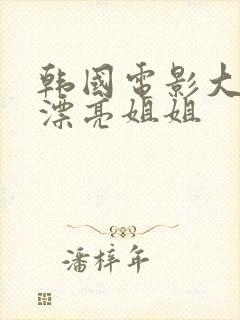 韩國电影大
漂亮姐姐
潘梓年